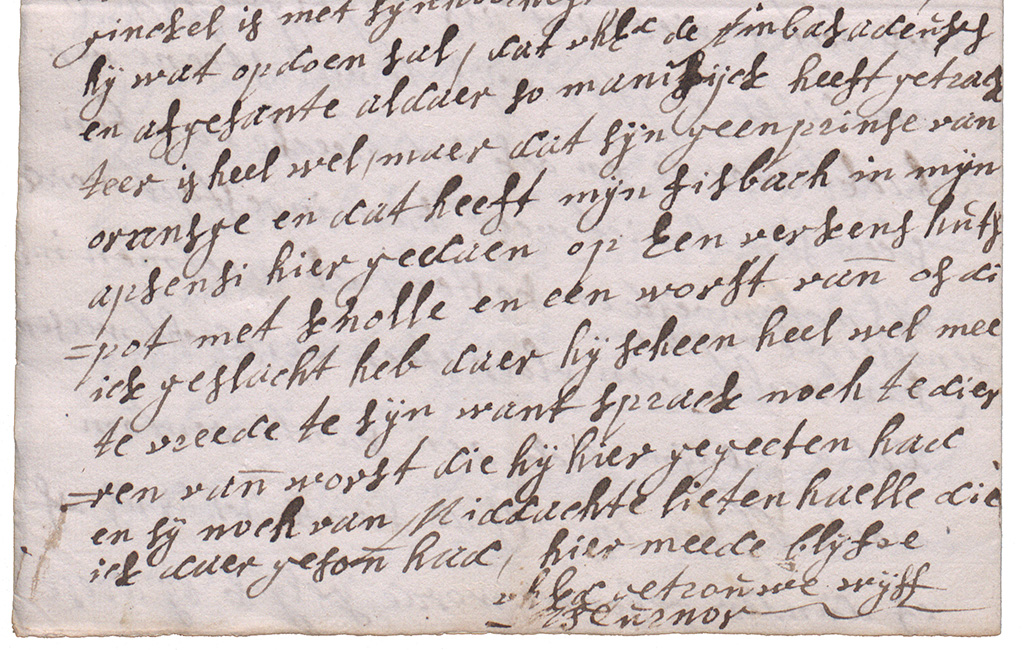 ginckel is met sijn
hij wat opdoen sal, dat uhEd de Ambasadeurs
en afgesante aldaer so manifijck heeft getrack
teer is heel wel, maer dat sijn geen prinse van
oransge en dat heeft mijn fisbach in mijn
apsensi hier gedaen op Een verckens huts
=pot met knolle en een worst van os di
ick geslacht heb daer hij scheen heel wel mee
te vreede te sijn want sprack noch te dier
=ren van worst die hij hier gegeeten had
en sij noch van Middachte lieten haelle die
ick daer geson had, hier meede blijfve
uhEd getrouwe wijff
Ursulla